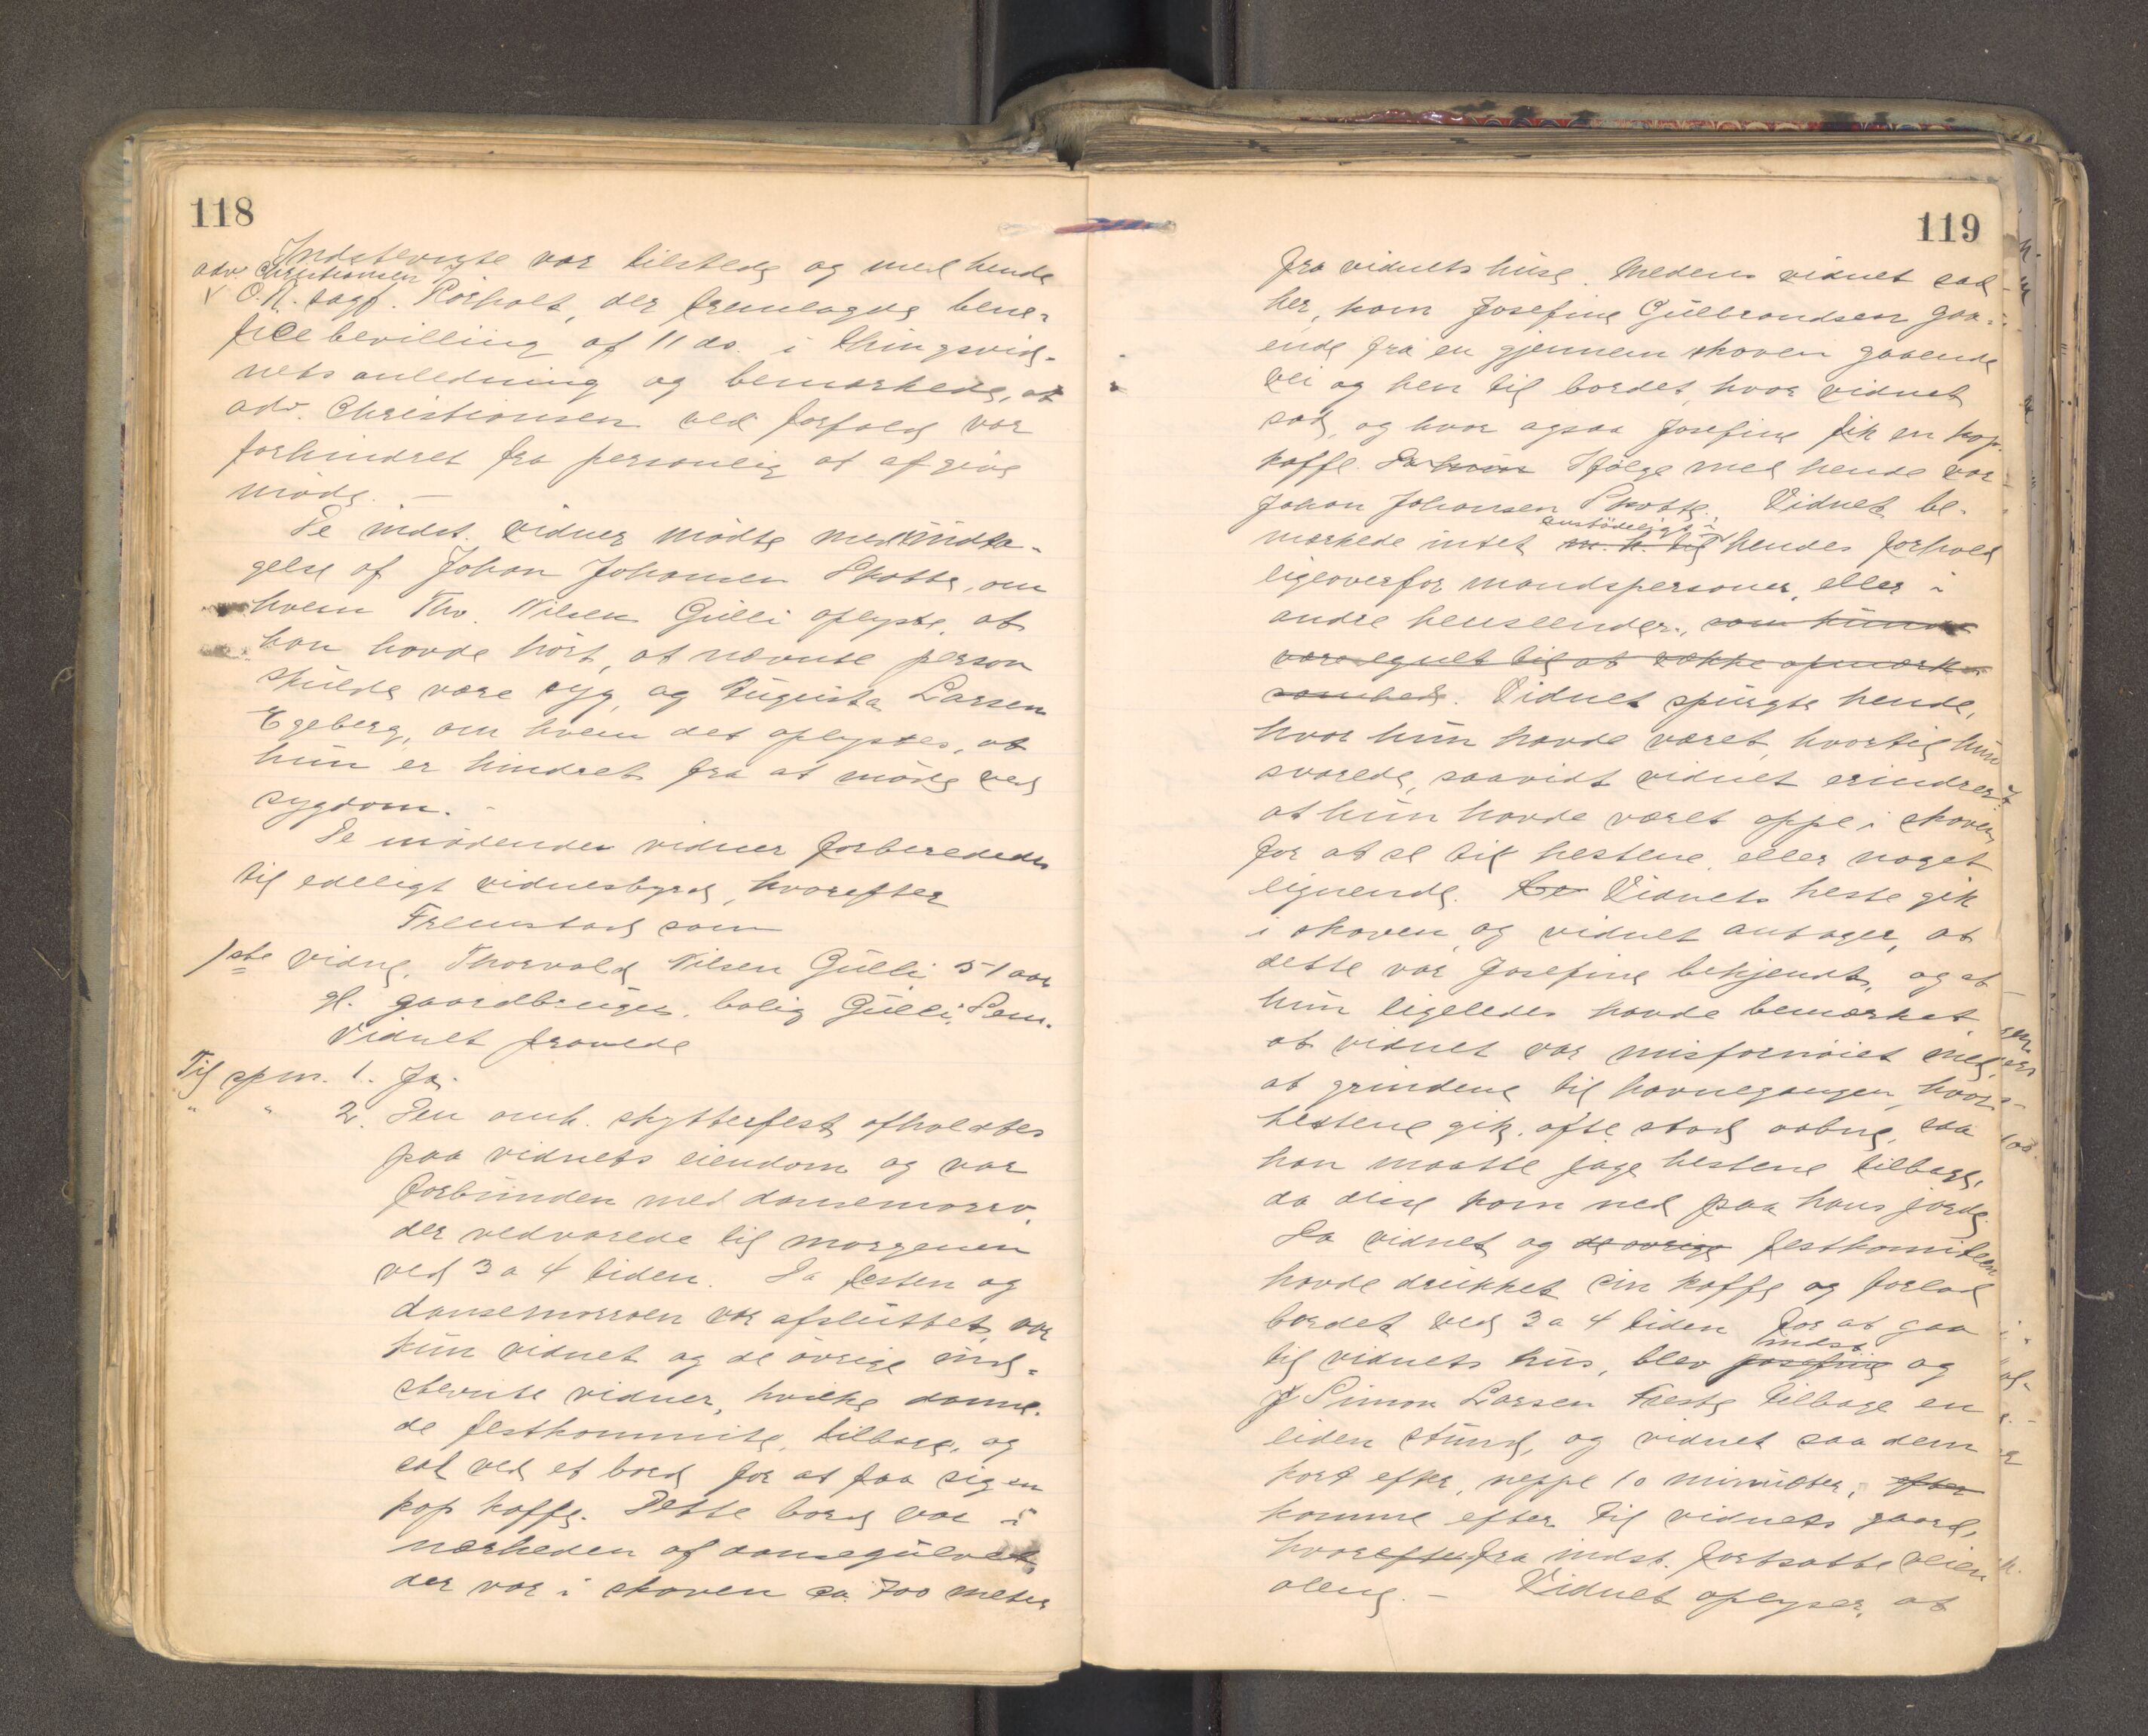 118
Indstevnte var tilstede og med hende
adv. Christiansen
v O.R. sagf. Rörholt, der fremlagde bene-
ficebevilling af 11 ds. i thingsvid-
nets anledning og bemærkede, at
adv. Christiansen ved forfald var
forhindret fra personlig at afgive
möde. —
De indst. vidner mödte med undta-
gelse af Johan Johansen Skotte, om
hvem Thv. Nilsen Gulli oplyste, at
han havde hört, at nævnte person
skulde være syg, og Augusta Larsen
Egeberg, om hvem det oplystes, at
hun er hindret fra at möde ved
sygdom. -
De mödende vidner forberededes
til edeligt vidnesbyrd, hvorefter
Fremstod som
1ste vidne, Thorvald Nilsen Gulli 51 aar
gl. gaardbruger, bolig Gulli, Sem.
Vidnet provede
Til spm. 1. Ja.
" " 2. Den omh. skytterfest afholdtes
paa vidnets eiendom og var
forbunden med dansemorro,
der vedvarede til morgenen
ved 3 a 4 tiden. Da festen og
dansemorroen var afsluttet, var
kun vidnet og de övrige ind-
stevnte vidner, hvilke danne-
de festkommite, tilbage, og
sat ved et bord for at faa sig en
kop kaffe. Dette bord var i
nærheden af dansegulvet,
der var i skoven ca. 700 meter
119
fra vidnets huse. Medens vidnet sad
her, kom Josefine Gulbrandsen gaa-
ende fra en gjennem skoven gaaende
vei og hen til bordet, hvor vidnet
sad, og hvor ogsaa Josefine fik en kop
kaffe. I fölge med hende var
Johan Johansen Skotte. Vidnet be-
anstödeligt i
mærkede intet m. h. til hendes forhold
ligeoverfor mandspersoner, eller i
andre henseender, som kunde
være egnet til at vække opmærk-
somhed. Vidnet spurgte hende,
hvor hun havde været, hvortil hun
svarede, saavidt vidnet erindrer,
at hun havde været oppe i skoven
for at se til hestene, eller noget
lignende. Vidnets heste gik
i skoven, og vidnet antager, at
dette var Josefine bekjendt, og at
hun ligeledes havde bemærket,
at vidnet var misfornöiet med,
at grindene til havnegangen, hvor
hestene gik, ofte stod aabne, saa
han maatte jage hestene tilbage,
da disse kom ned paa hans jorde.
Da vidnet og de övrige festkomiteen
havde drukket sin kaffe og forlod
bordet ved 3 a 4 tiden for at gaa
indst.
til vidnets hus, blev Josefine og
Simon Larsen Freste tilbage en
liden stund, og vidnet saa dem
kort efter, neppe 10 minutter, efter
komme efter til vidnets gaard,
hvorefter fra indst. fortsatte veien
alene. — Vidnet oplyser, at